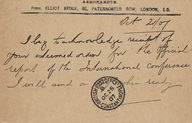 FROM ELLIOT STOCK, 62, PATERNOSTER ROW, LONDON, E.C.
Oct 2/07
I beg to acknowledge receipt of
your esteemed order for the official
report of the International Conference
I will send a when ready